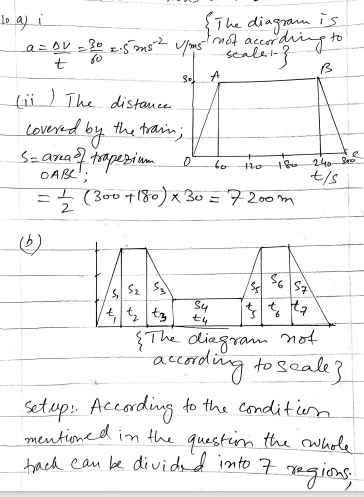 10 a) i
{The diagram is
not according to
scale:-}
a = ΔV/t = 30/60 = .5 ms⁻² V/ms⁻¹
A B
30
(ii) The distance
covered by the train;
S = area of trapezium
OABC;
0 60 120 180 240 300 C
t/s
= 1/2 (300 + 180) × 30 = 7200m
(b)
S₁ S₂ S₃ S₄ S₅ S₆ S₇
t₁ t₂ t₃ t₄ t₅ t₆ t₇
{The diagram not
according to scale}
setup:. According to the condition
mentioned in the question the whole
track can be divided into 7 regions;